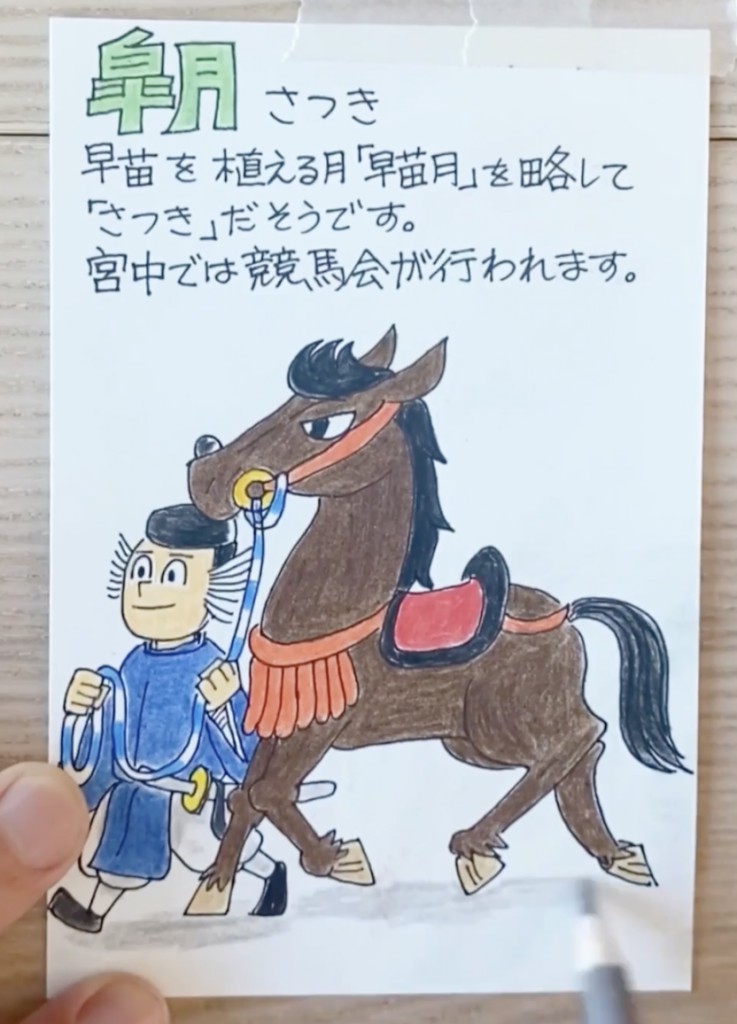 皐月 さつき
早苗を植える月「早苗月」を略して
「さつき」だそうです。
宮中では競馬会が行われます。